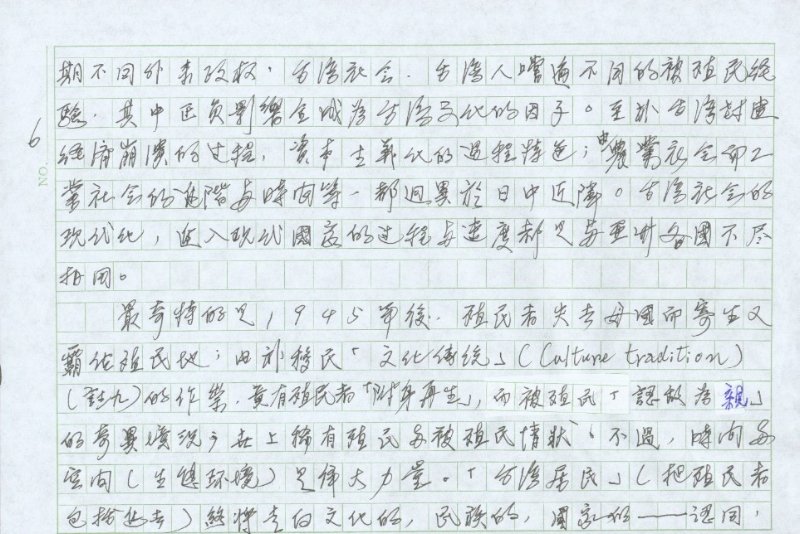 期不同外來政权,台湾社会、台湾人嚐遍不同的被殖民經
驗,其中正負影響全成為台湾文化的因子。至於台湾封建
經濟崩潰的过程,資本主義化的過程特色;由農業社会而工
業社会的進階与時間等,都迥異於日中近隣。台湾社会的
現代化,進入現代國家的过程与速度都是与亚洲各國不尽
相同。
最奇特的是,1945年後,殖民者失去母國而寄生又
霸佔殖民地;由於移民「文化傳統」(Culture tradition)
(註九)的作崇,竟有殖民者「附身再生」,而被殖民「認敵為親」
的奇異情況;世上稀有殖民与被殖民情狀。不過,時间与
空间(生態环境)是偉大力量。「台湾居民」(把殖民者
包括進去)終將走向文化的,民族的,國家的——認同,
NO. 6